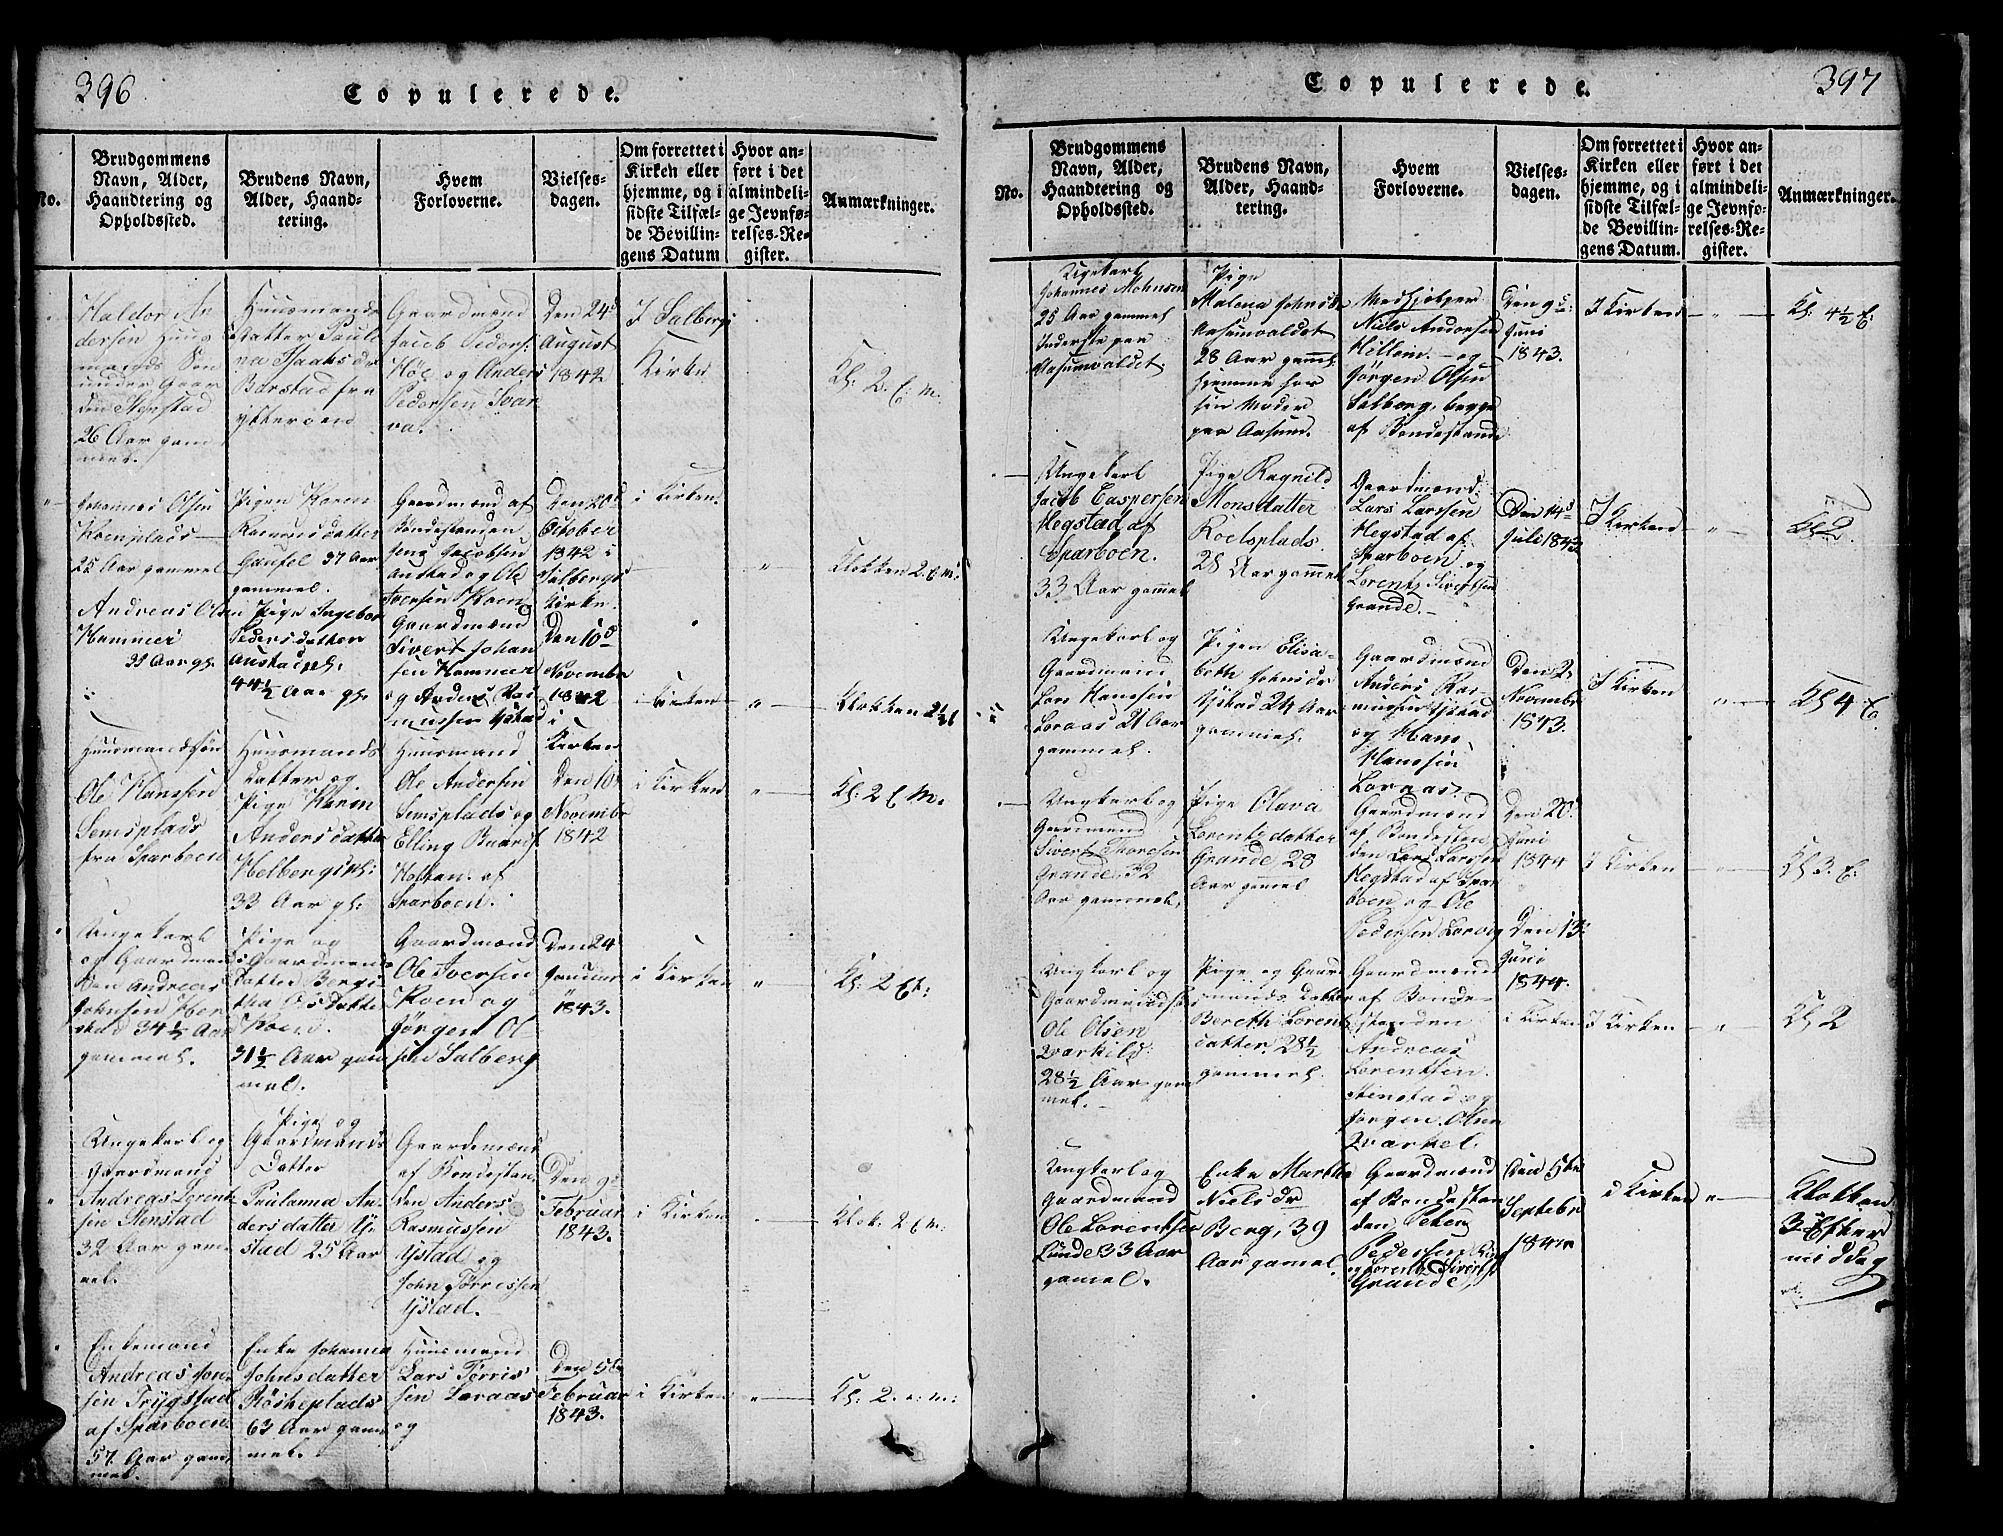 396
Copulerede.
No.
Brudgommens
Navn, Alder,
Haandtering og
Opholdssted.
Brudens Navn,
Alder, Haand-
tering.
Hvem
Forloverne.
Vielses-
dagen.
Om forrettet i
Kirken eller
hjemme, og i
sidste Tilfæl-
de Bevillin-
gens Datum
Hvor an-
ført i det
almindeli-
ge Jevnfø-
relses-Re-
gister.
Anmærkninger.
Haldor An
dersen Huus
mands Søn
under Gaar
den Stenstad
26 Aar gam
mel.
Huusmands
Datter Pauli
na Isaksdr
Barstad fra
Ytterøen
Gaardmænd
Jacob Peders.
Höe og Anders
Pedersen Svar
va.
Den 24d
August
1842
I Salbergs
Kirke
Kl. 2. E. M.
Johannes Olsen
Koenplads
25 Aar gammel
Pigen Karen
Rasmusdatter
37 Aar
gammel.
Gaardmænd af
Bondestanden
Jacobsen
Austad og Ole
Iversen Koen
Den 20d
October
1842 i
Salbergs
Kirke.
i Kirken.
Klokken 2. E M.
Andreas Olsen
Hammer
gl.
Pige Ingebor
Pedersdatter
Austad
44½ Aar gl.
Gaardmænd
Sivert Johan
sen Hammer
og Anders Ras
mussen Ystad
Den 10d
November
1842
i
Kirken
i Kirken
Klokken 2½
Huusmandssön
Ole Hanssen
Semsplads
fra Sparboen
Huusmands
Datter og
Pige Karen
Andersdatter
Helberg
33 Aar gl:
Huusmand
Ole Andersen
Semsplads og
Elling Baards.
Holten af
Sparboen.
Den 10
November
1842
i Kirken
Kl: 2 E M.
Ungekarl
og Gaardmand
Andreas
Johnsen Her
stad 34½ Aar
gammel.
Pige og
Gaardmands
Datter Beregi
tha Olsdatter
Koen.
31½ Aar gam
mel.
Gaardmænd
Ole Iversen
Koen og
Jörgen Ol-
sen Salberg
Den 24
Januar
1843.
i Kirken
Kl: 2 Et:
Ungekarl og
Gaardmand
Andreas Lorent
sen Stenstad
32 Aar gam-
mel.
Pige og
Gaardmands
Datter
Paulanna An-
dersdatter Y-
stad 25 Aar
Gaardemænd
af Bondestan
den Anders
Rasmussen
Ystad og
John Törressen
Ystad.
Den 9d
Februar
1843.
i Kirken
Klok. 2 E m.
Enkemand
Andreas Jon-
sen Trygstad
af Sparboen
57 Aar gam
mel.
Enke Johanna
Johnsdatter
Röskeplads
63 Aar gam
mel.
Huusmænd
Lars Törris
sen Loraas
og
Den 5te
Februar
1843.
i Kirken
Kl: 2. e. m:
397
Copulerede.
No.
Brudgommens
Navn, Alder,
Haandtering og
Opholdssted.
Brudens Navn,
Alder, Haand-
tering.
Hvem
Forloverne.
Vielses-
dagen.
Om forrettet i
Kirken eller
hjemme, og i
sidste Tilfæl-
de Bevillin-
gens Datum.
Hvor an-
ført i det
almindeli-
ge Jevnfø-
relses-Re-
gister.
Anmærkninger.
Ugekarl
Johannes Mohnsen
25 Aar gammel
Inderste paa
Aasumvaldet.
Pige
Malena Johnsdr
Aasumvaldet
28 Aar gaml.
hjemme hos
sin Moder
paa Aasum.
Medhjelper
Niels Andersen
Hellem. og
Jörgen Olsen
Salberg, begge
af Bondestande
Den 9de
Juni
1843.
I Kirken
Kl: 4½ E:
Ungekarl
Jacob Caspersen
Hegstad af
Sparboen.
33 Aar gammel
Pige Ragnild
Monsdatter
Koelsplads.
28 Aar gammel
Gaardmænd:
Lars Larssen
Hegstad af
Sparboen og
Lorents Sivertsen
Grande.
Den 14d
Juli 1843
I Kirken
Kl 2.
Ungekarl og
Gaardmand
Lars Hanssen
Loraas 21 Aar
gammel.
Pigen Elisa-
beth Johnsdr
Ystad 24 Aar
gammel.
Gaardmænd
Anders Ras-
mussen Ystad
og Hans
Hanssen
Loraas.
Den 2
November
1843.
I Kirken
Kl 4 E.
Ungkarl og
Gardmand
Sivert
Grande 32
Aar gammel.
Pige Olava
Lorentzdatter
Grande 28
Aar gamel
Gaardmænd
af Bondestan
den Lars Larssen
Hegstad af Spar
boen og Ole
Pedersen
Den 20
Juni
1844
I Kirken
Kl 3. E.
Ungkarl og
Gaardmand
Ole Olsen
Qvarkild
28½ Aar gam
mel.
Pige og Gaar
mands Datter
Bereth Lorents
datter. 28½
gammel.
Gaardmænd
af Bonde-
standen
Andreas
Lorentsen
Stenstad og
Jörgen Olsen
Qvarkel.
Den 13
Juni
1844.
i Kirken
I Kirken
Kl 2
Ungkarl og
Gaardmand
Ole Lorentsen
Lunde 33 Aar
gamel.
Enke Martha
Nielsdr
Berg, 39
Aar gamel.
Gaardmænd
af Bondestan
den Peter
Pedersen
og Lorents Siverts
Grande,
den 5te
September
1844
i Kirken
Klokken
3 Efter
middag